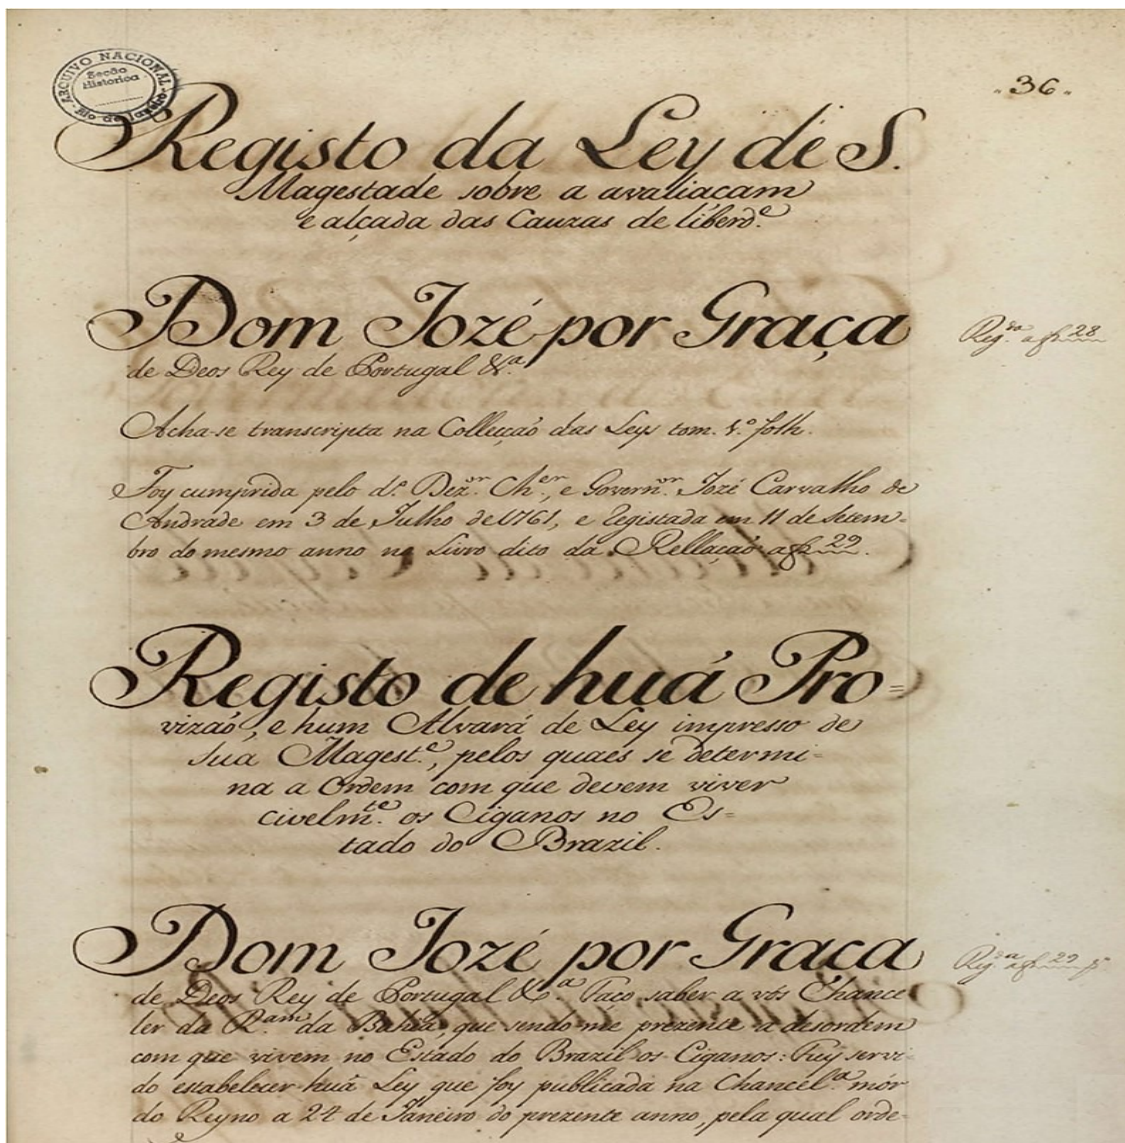 ARQUIVO NACIONAL
Secão
Historica
Rio de Janeiro
36
Registo da Ley de S.
Magestade sobre a avaliaçam
e alçada das Cauzas de liberd.e
Dom Jozé por Graça
Reg.da a f 28
de Deos Rey de Portugal &.a
Acha-se transcripta na Collecçaõ das Leys tom. 1.º folh.
Foy cumprida pelo d.º Dez.or Ch.er, e Govern.or Jozé Carvalho de
Andrade em 3 de Julho de 1761, e Registada em 11 de Setem-
bro do mesmo anno no Livro dito da Rellaçaõ a f 29.
Registo de huá Pro=
vizaõ, e hum Alvará de Ley impresso de
Sua Magest.e, pelos quaes se determi-
na a Ordem com que devem viver
civelm.te os Ciganos no Es=
tado do Brazil.
Dom Jozé por Graça
Reg.da a f 29
de Deos Rey de Portugal &.a Faço saber a vós Chance
ler da R.am da Bahia, que sendo-me prezente a desordem
com que vivem no Estado do Brazil os Ciganos: Fuy servi-
do estabelecer huã Ley que foy publicada na Chancel.a mór
do Reyno a 24 de Janeiro do prezente anno, pela qual orde-